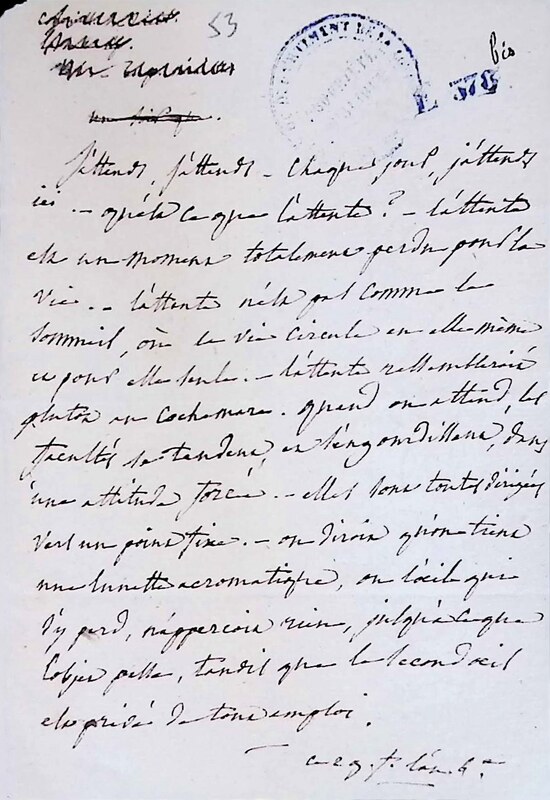 53
bis
F 378
J'attends, j'attends – chaque jour, j'attends
ici. – qu'est ce que l'attente? – l'attente
est un moment totalement perdu pour la
vie. – l'attente n'est pas comme le
sommeil, où la vie circule en elle même
et pour elle seule. – l'attente ressembleroit
plutôt au cochemare. quand on attend, les
facultés se tendent, en s'engourdissant, dans
une attitude forcée. – elles sont toutes dirigées
vers un point fixe. – on diroit qu'on tient
une lunette acromatique, où l'oeil qui
s'y perd, n'apperçoit rien, jusqu'à ce que
l'objet passe, tandis que le second oeil
est privé de tout emploi.
ce 29